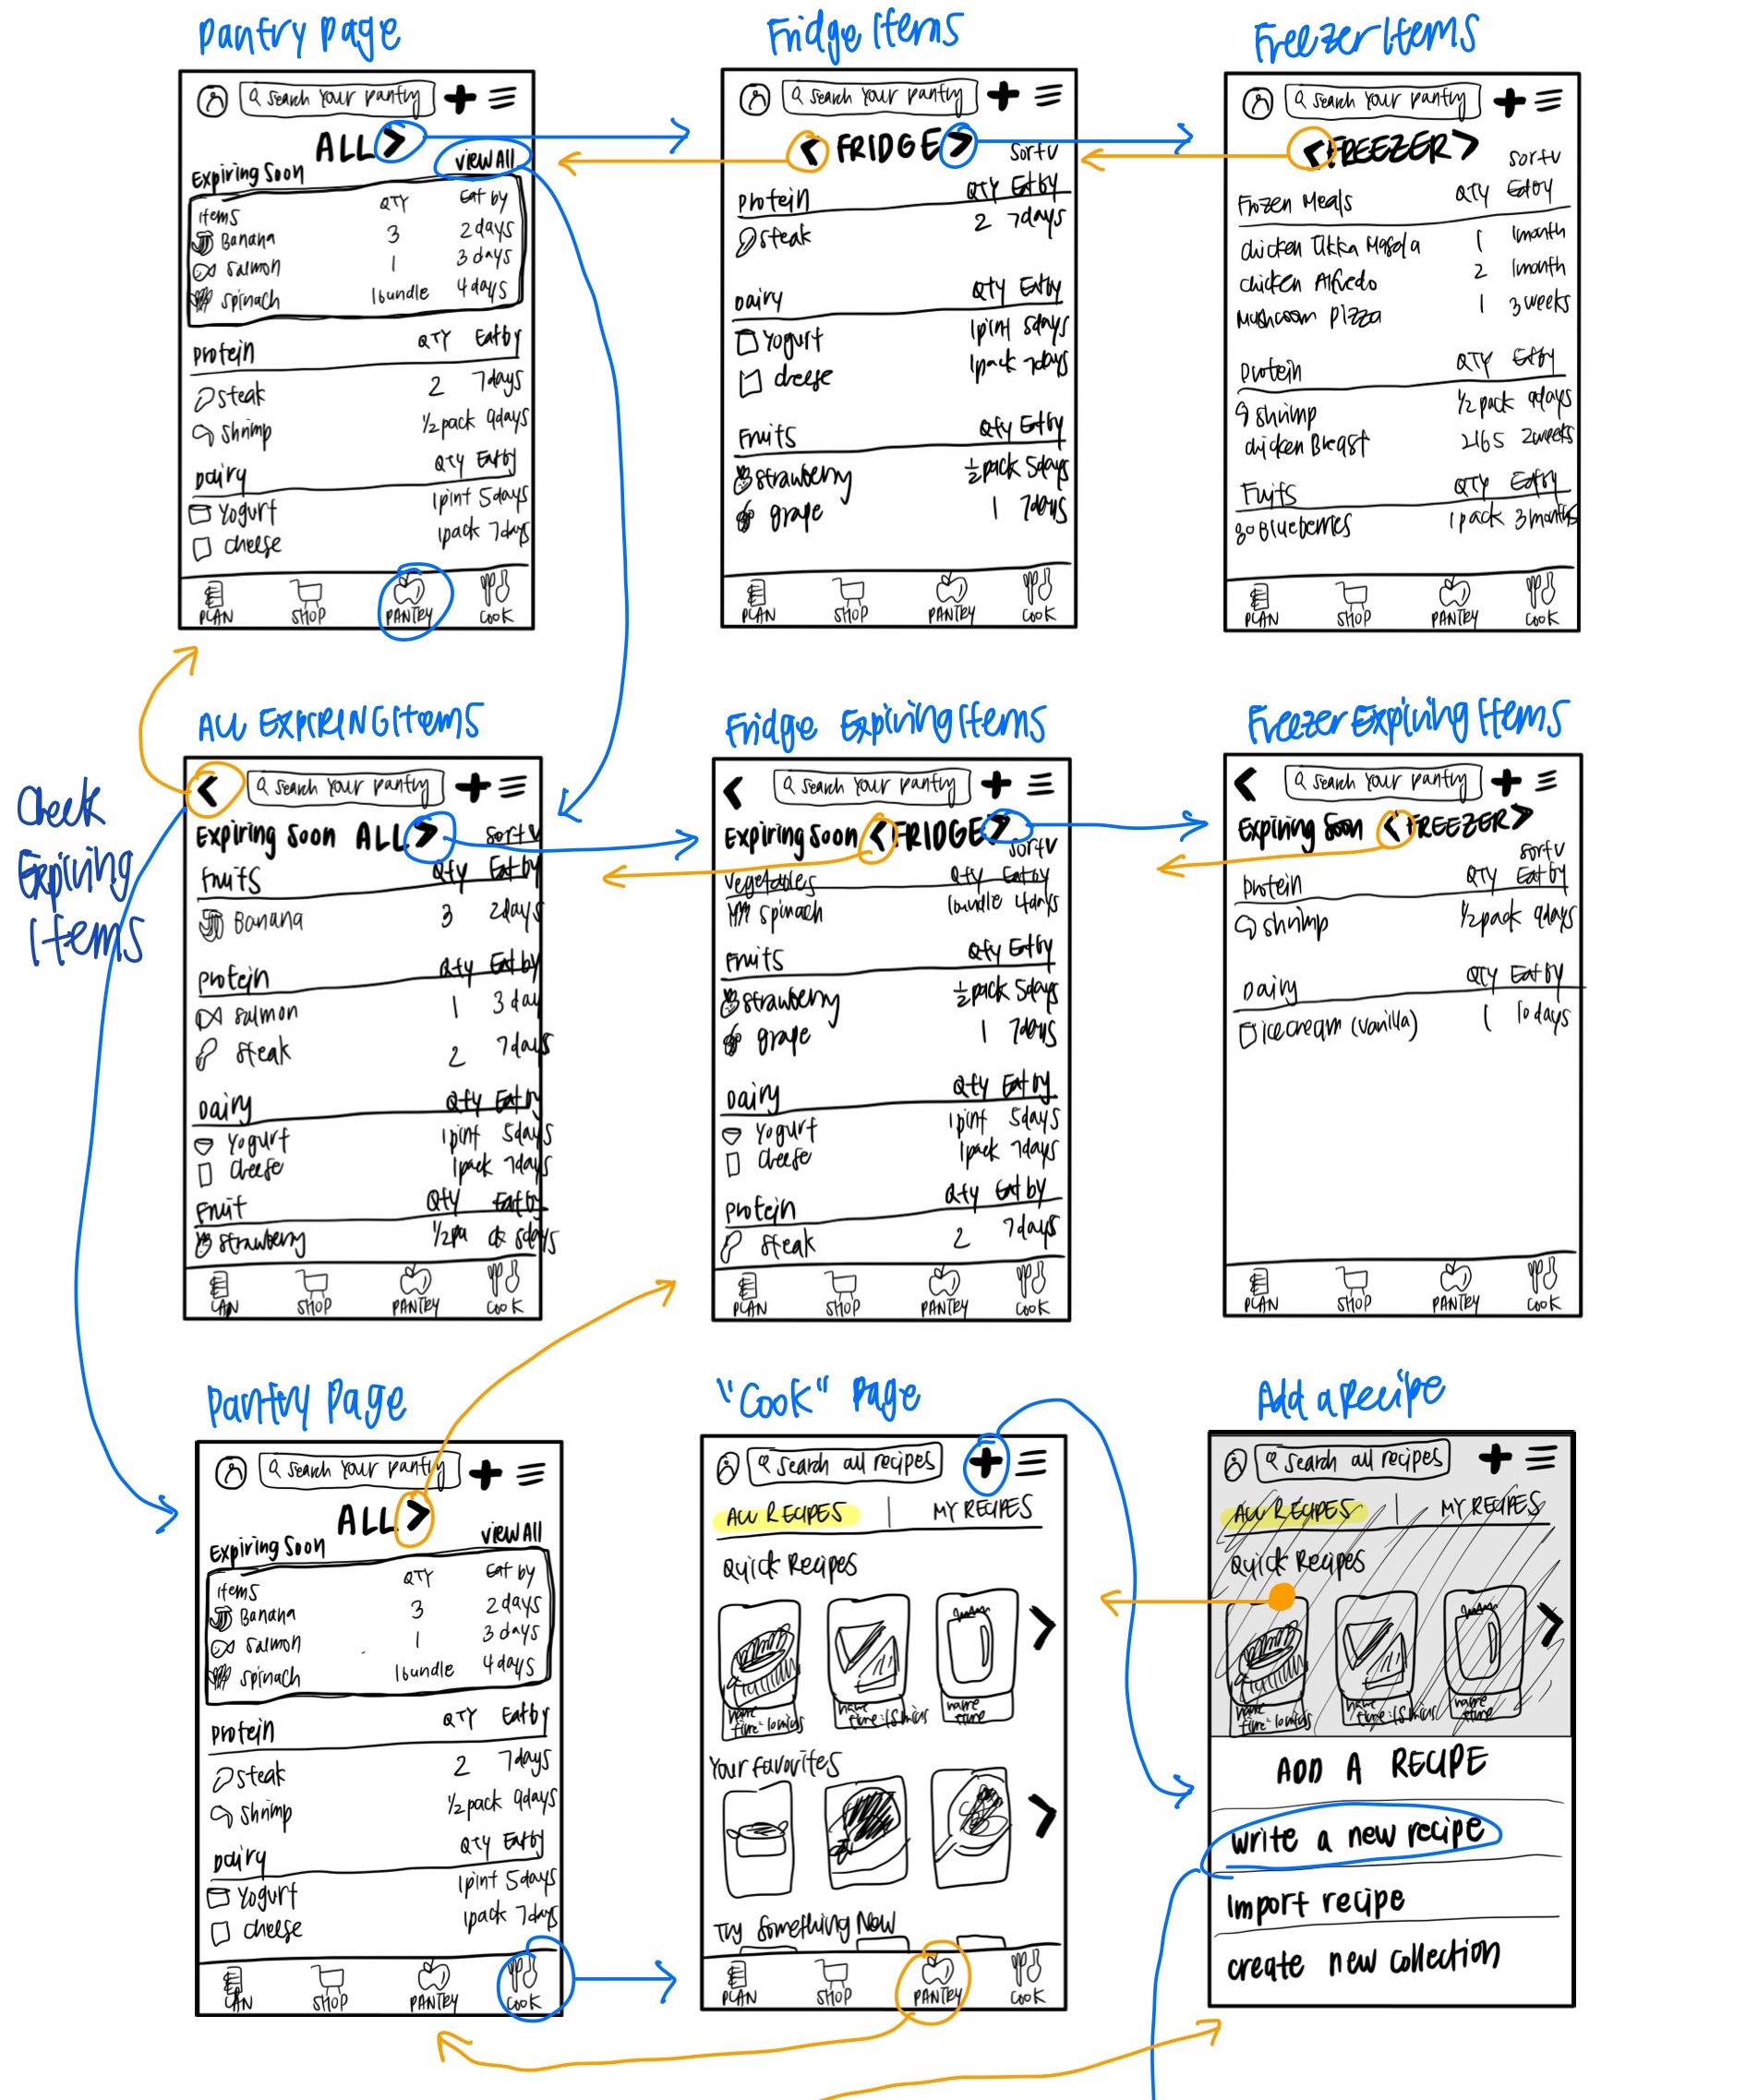 Pantry Page
Search Your Pantry
ALL >
Expiring Soon View All
Items QTY Eat by
Banana 3 2 days
Salmon 1 3 days
Spinach 1 bundle 4 days
Protein QTY Eat by
Steak 2 7 days
Shrimp 1/2 pack 9 days
Dairy QTY Eat by
Yogurt 1 pint 5 days
Cheese 1 pack 7 days
PLAN SHOP PANTRY COOK
Fridge Items
Search Your Pantry
< FRIDGE >
Sort v
Protein QTY Eat by
Steak 2 7 days
Dairy QTY Eat by
Yogurt 1 pint 5 days
Cheese 1 pack 7 days
Fruits Qty Eat by
Strawberry 1/2 pack 5 days
grape 1 7 days
PLAN SHOP PANTRY COOK
Freezer Items
Search Your Pantry
< FREEZER >
Sort v
Frozen Meals QTY Eat by
Chicken Tikka Masala 1 1 month
Chicken Alfredo 2 1 month
Mushroom Pizza 1 3 weeks
Protein QTY Eat by
Shrimp 1/2 pack 9 days
Chicken Breast 2 lbs 2 weeks
Fruits QTY Eat by
Blueberries 1 pack 3 months
PLAN SHOP PANTRY COOK
Check
Expiring
Items
ALL EXPIRING Items
< Search Your Pantry
Expiring Soon ALL > Sort v
Fruits Qty Eat by
Banana 3 2 days
Protein Qty Eat by
Salmon 1 3 day
Steak 2 7 days
Dairy Qty Eat by
Yogurt 1 pint 5 days
Cheese 1 pack 7 days
Fruit Qty Eat by
Strawberry 1/2 pa ck 5 days
SHOP PANTRY COOK
Fridge Expiring Items
< Search Your Pantry
Expiring Soon < FRIDGE >
Sort v
Vegetables Qty Eat by
Spinach 1 bundle 4 days
Fruits Qty Eat by
Strawberry 1/2 pack 5 days
grape 1 7 days
Dairy Qty Eat by
Yogurt 1 pint 5 days
Cheese 1 pack 7 days
Protein Qty Eat by
Steak 2 7 days
PLAN SHOP PANTRY COOK
Freezer Expiring Items
< Search Your Pantry
Expiring Soon < FREEZER >
Sort v
Protein QTY Eat by
Shrimp 1/2 pack 9 days
Dairy QTY Eat by
ice cream (vanilla) 1 10 days
PLAN SHOP PANTRY COOK
Pantry Page
Search Your Pantry
ALL >
Expiring Soon View All
Items QTY Eat by
Banana 3 2 days
Salmon 1 3 days
Spinach 1 bundle 4 days
Protein QTY Eat by
Steak 2 7 days
Shrimp 1/2 pack 9 days
Dairy QTY Eat by
Yogurt 1 pint 5 days
Cheese 1 pack 7 days
SHOP PANTRY COOK
"Cook" Page
Search all recipes
ALL RECIPES | MY RECIPES
Quick Recipes
name name name
time: 10 mins time: 15 mins time
Your Favorites
Try Something New
PLAN SHOP PANTRY COOK
Add a Recipe
Search all recipes
ALL RECIPES | MY RECIPES
Quick Recipes
name name name
time: 10 mins time: 15 mins time
ADD A RECIPE
Write a new recipe
Import recipe
create new collection